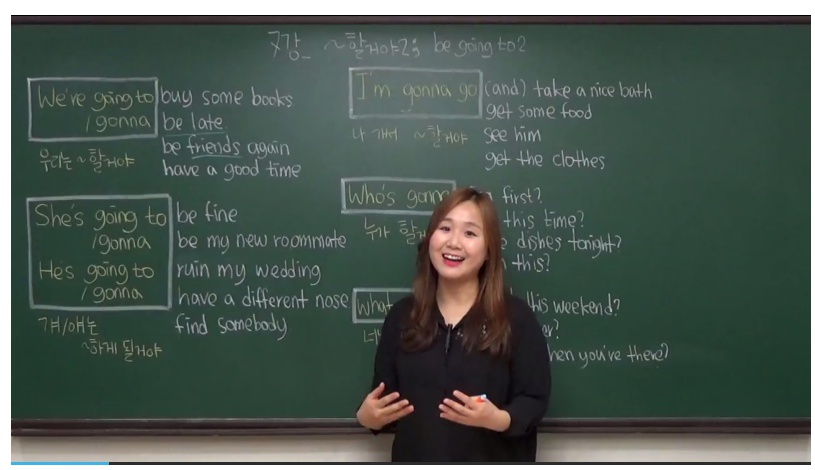 7강 ~할거야2; be going to 2
We're going to buy some books
/gonna be late
be friends again
우리는 ~할거야 have a good time
She's going to be fine
/gonna be my new roommate
He's going to ruin my wedding
/gonna have a different nose
걔/얘는 find somebody
~하게 될거야
I'm gonna go (and) take a nice bath
get some food
나 가서 ~할거야 see him
get the clothes
Who's gonna first?
누가 this time?
dishes tonight?
this?
What this weekend?
when you're there?